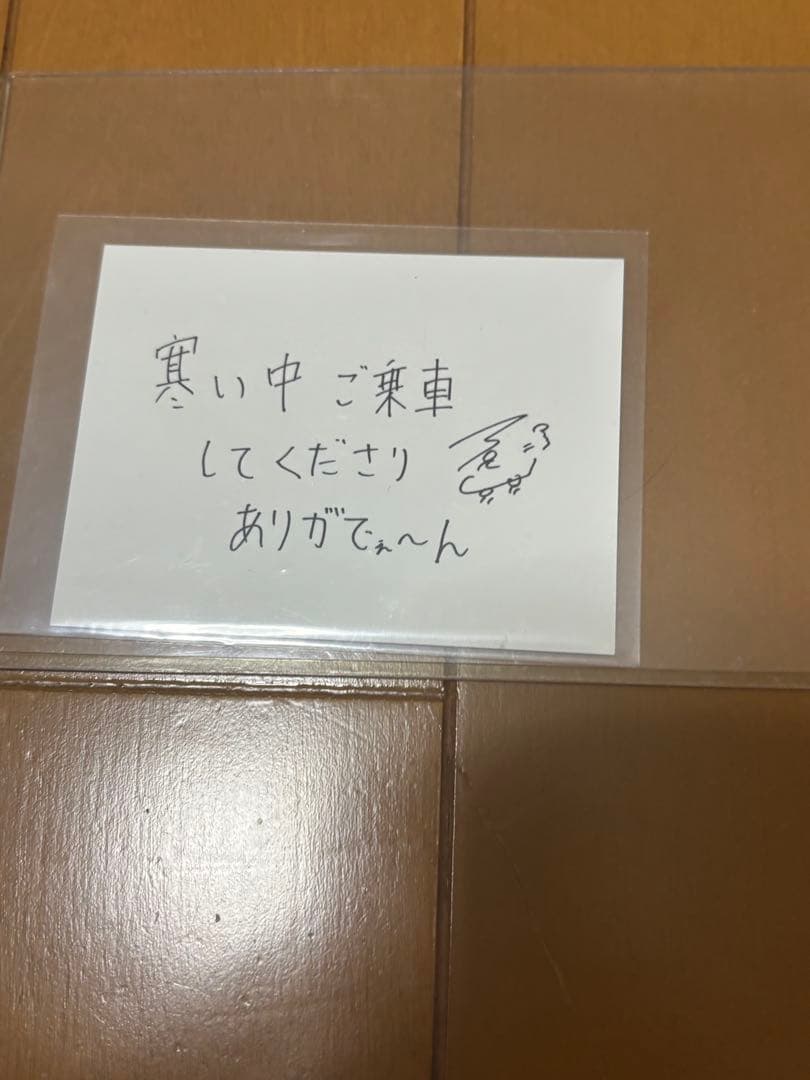 寒い中 ご乗車
してくださり
ありがでぇ〜ん